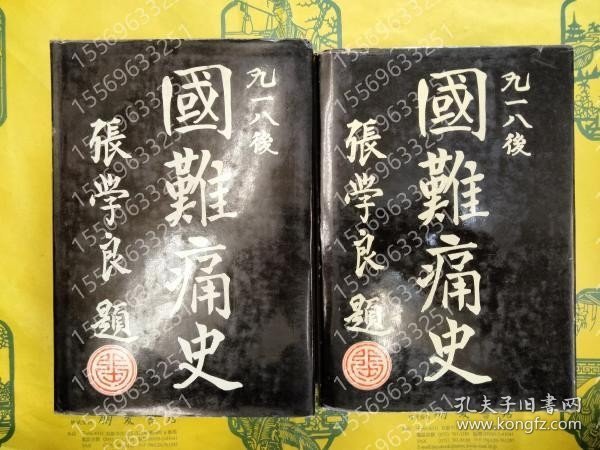 九一八後
國難痛史
張学良題
九一八後
國難痛史
張学良題
15569633251
孔夫子旧书网
www.kongfz.com